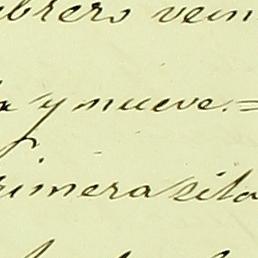 brero vein
y nueve.=
rimera sila